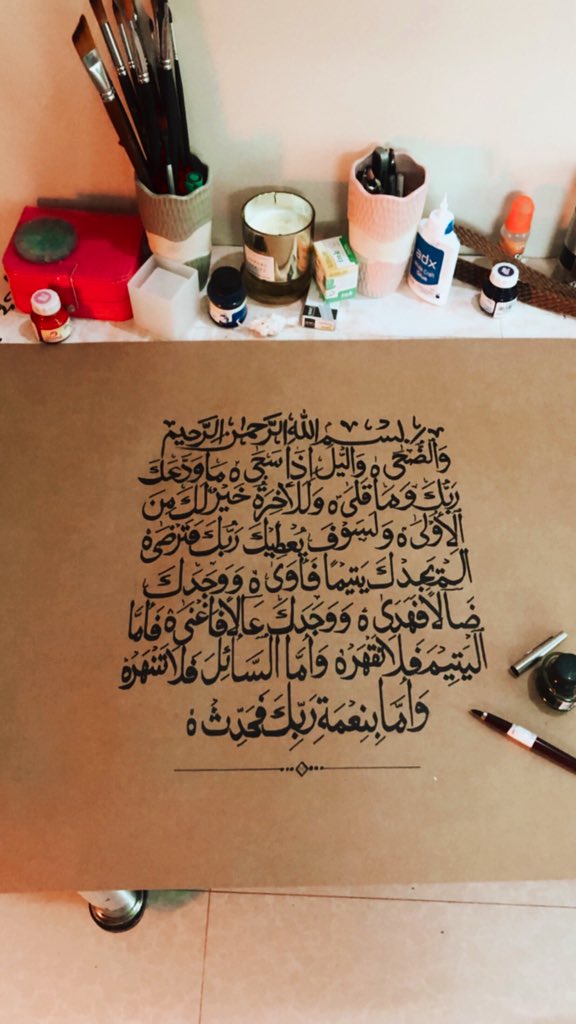 بِسْمِ اللهِ الرَّحْمٰنِ الرَّحِيْمِ
وَالضُّحٰى ہ وَالَّيْلِ اِذَا سَجٰى ہ مَا وَدَّعَكَ
رَبُّكَ وَمَا قَلٰى ہ وَلَلْاٰخِرَةُ خَيْرٌ لَّكَ مِنَ
الْاُوْلٰى ہ وَلَسَوْفَ يُعْطِيْكَ رَبُّكَ فَتَرْضٰى ہ
اَلَمْ يَجِدْكَ يَتِيْمًا فَاٰوٰى ہ وَوَجَدَكَ
ضَآلًّا فَهَدٰى ہ وَوَجَدَكَ عَآئِلًا فَاَغْنٰى ہ فَاَمَّا
الْيَتِيْمَ فَلَا تَقْهَرْ ہ وَاَمَّا السَّآئِلَ فَلَا تَنْهَرْ ہ
وَاَمَّا بِنِعْمَةِ رَبِّكَ فَحَدِّثْ ہ
adx
Glue
ink